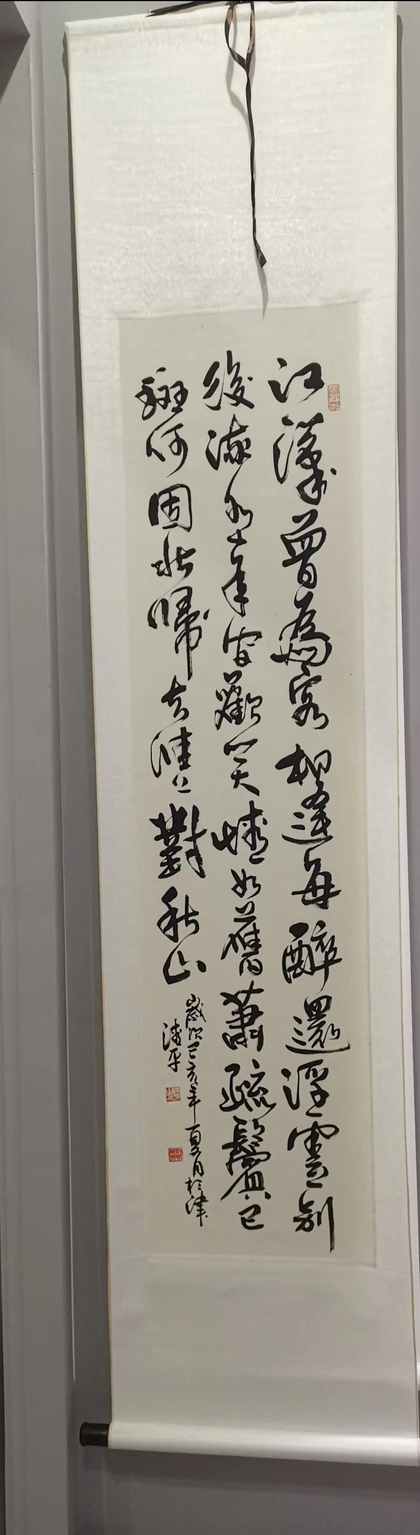 江漢曾為客相逢每醉還浮雲一別
後流水十年間歡笑情如舊蕭疏鬢已
斑何因北歸去淮上對秋山
歲次己亥年夏月於津